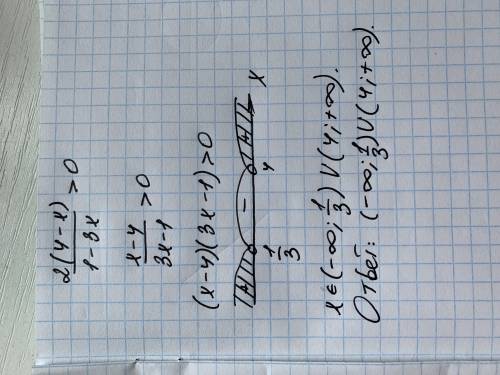 2(4-x)/1-3x > 0
x-4/3x-1 > 0
(x-4)(3x-1)>0
+ - + x
1/3 4
x∈(-∞; 1/3)∪(4;+∞).
Ответ: (-∞; 1/3)∪(4;+∞).